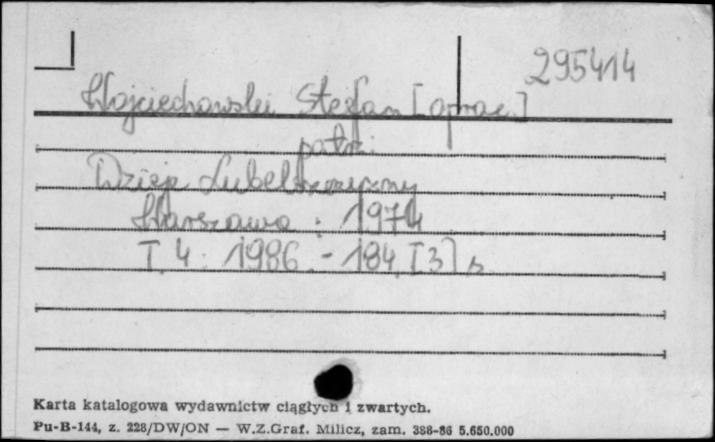 295414
Wojciechowski Stefan [oprac.]
patrz:
Dzieje Lubelszczyzny
Warszawa : 1974
T. 4: 1986. - 184, [3] s
Karta katalogowa wydawnictw ciągłych i zwartych.
Pu-B-144, z. 228/DW/ON — W.Z.Graf. Milicz, zam. 388-86 5.650.000